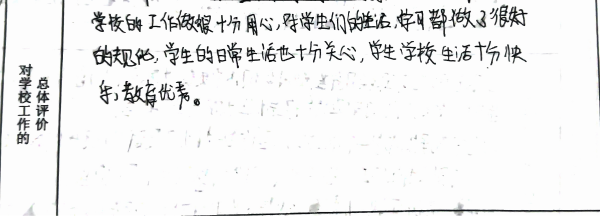 学校的工作做很十分用心,对学生们的生活,学习都做了很好
的规他,学生的日常生活也十分关心,学生学校生活十分快
乐,教育优秀。
对学校工作的
总体评价